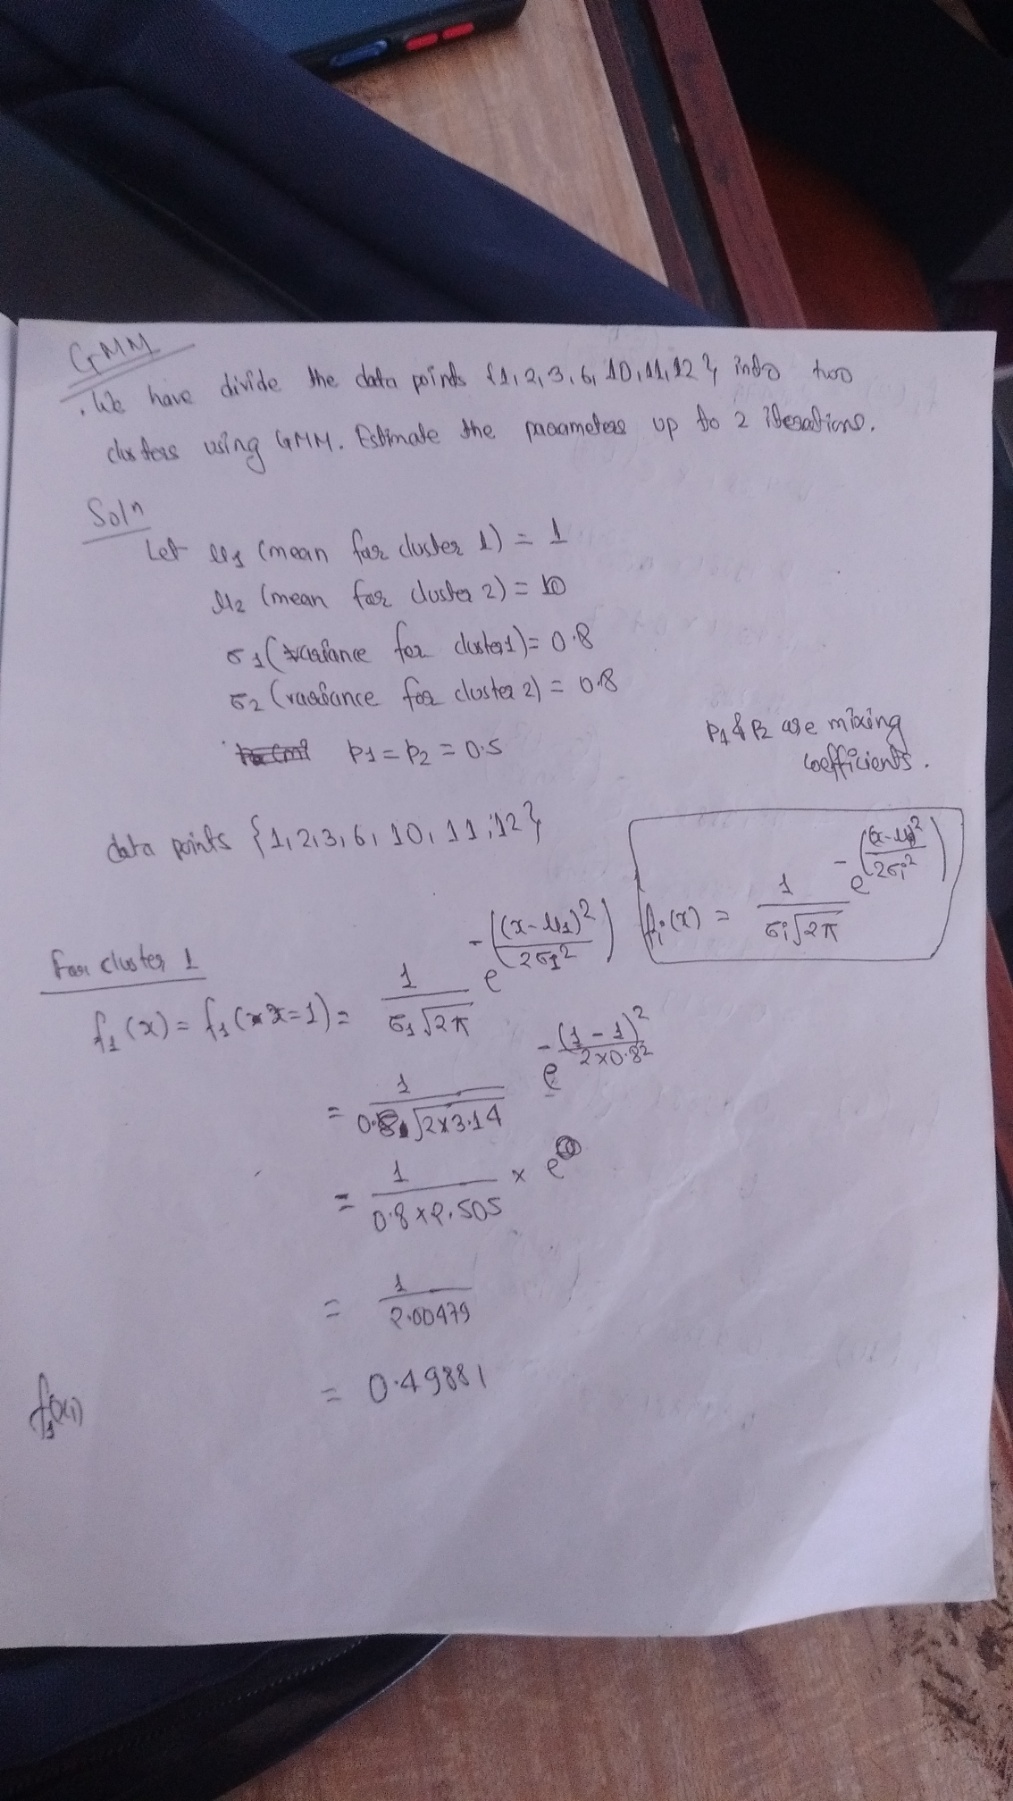 GMM
. We have divide the data points {1, 2, 3, 6, 10, 11, 12} into two
clusters using GMM. Estimate the parameters up to 2 iterations.
Solⁿ
Let μ₁ (mean for cluster 1) = 1
μ₂ (mean for cluster 2) = 10
σ₁ (variance for cluster 1) = 0.8
σ₂ (variance for cluster 2) = 0.8
P₁ = P₂ = 0.5
P₁ & P₂ are mixing
coefficients.
data points {1, 2, 3, 6, 10, 11, 12}
fᵢ(x) = 1/(σᵢ√2π) e^-((x-μᵢ)²/2σᵢ²)
For cluster 1
f₁(x) = f₁(x=1) = 1/(σ₁√2π) e^-((x-μ₁)²/2σ₁²)
= 1/(0.8√2×3.14) e^-(1-1)²/2×0.8²
= 1/(0.8×2.505) × e⁰
= 1/2.00479
= 0.49881
f₁(x₁)